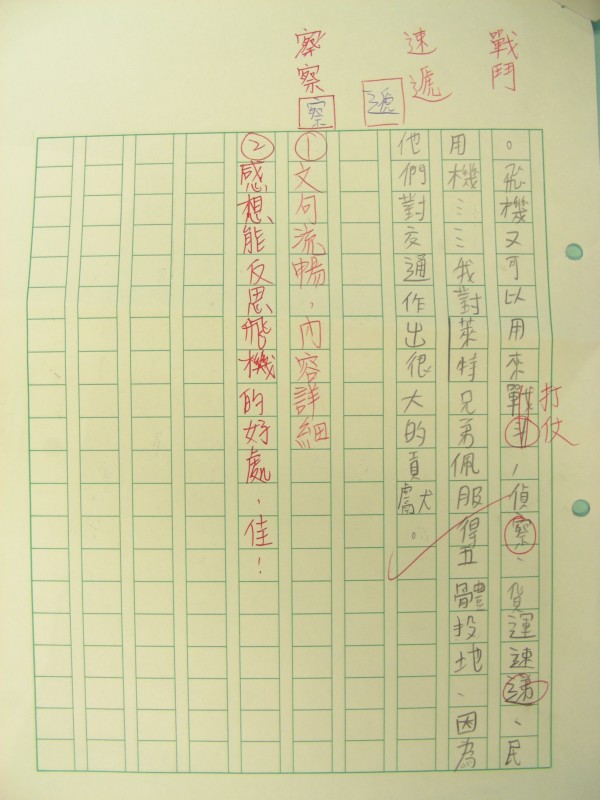 戰鬥
速遞
遞
察察
察
。飛機又可以用來戰斗，偵察、貨運速递、民
打仗
用機……我對萊特兄弟佩服得五體投地、因為
他們對交通作出很大的貢獻。
①文句流暢，內容詳細
②感想能反思飛機的好處，佳！